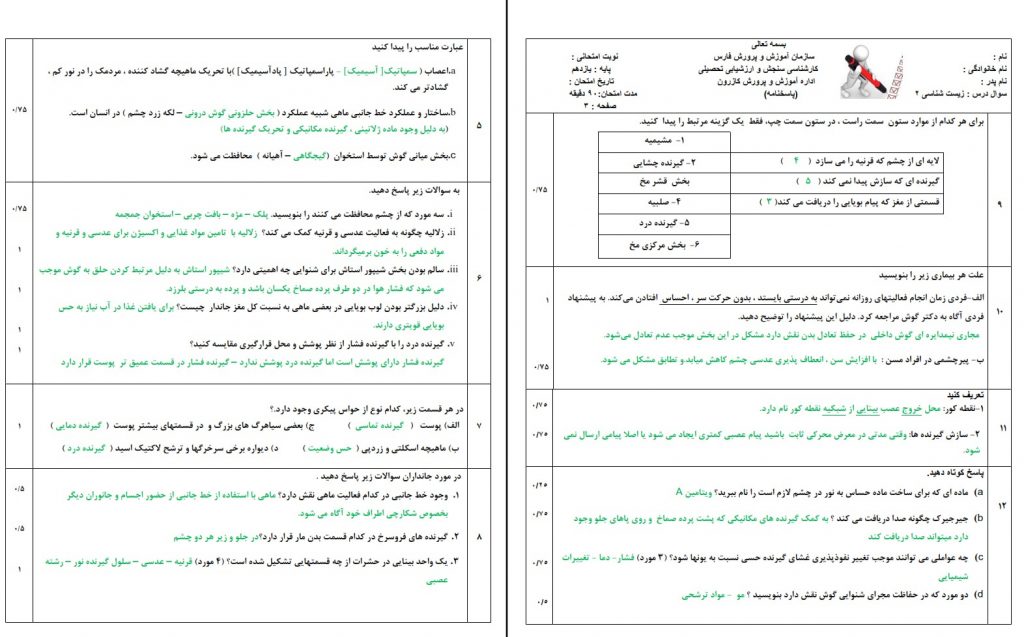 عبارت مناسب را پیدا کنید
a.اعصاب ( سمپاتیک[ آسیمیک] - پاراسمپاتیک [ پادآسیمیک] )با تحریک ماهیچه گشاد کننده ، مردمک را در نور کم ،
گشادتر می کند.
b.ساختار و عملکرد خط جانبی ماهی شبیه عملکرد ( بخش حلزونی گوش درونی – لکه زرد چشم ) در انسان است.
(به دلیل وجود ماده ژلاتینی ، گیرنده مکانیکی و تحریک گیرنده ها)
c.بخش میانی گوش توسط استخوان (گیجگاهی – آهیانه ) محافظت می شود.
۵
۰/۷۵
به سوالات زیر پاسخ دهید.
i. سه مورد که از چشم محافظت می کنند را بنویسید. پلک – مژه – بافت چربی – استخوان جمجمه
ii. زلالیه چگونه به فعالیت عدسی و قرنیه کمک می کند؟ زلالیه با تامین مواد غذایی و اکسیژن برای عدسی و قرنیه و
مواد دفعی را به خون برمیگرداند.
iii. سالم بودن بخش شیپور استاش برای شنوایی چه اهمیتی دارد؟ شیپور استاش به دلیل مرتبط کردن حلق به گوش موجب
می شود که فشار هوا در دو طرف پرده صماخ یکسان باشد و پرده به درستی بلرزد.
iv. دلیل بزرگتر بودن لوب بویایی در بعضی ماهی به نسبت کل مغز جاندار چیست؟ برای یافتن غذا در آب نیاز به حس
بویایی قویتری دارند.
v. گیرنده درد را با گیرنده فشار از نظر پوشش و محل قرارگیری مقایسه کنید؟
گیرنده فشار دارای پوشش است اما گیرنده درد پوشش ندارد – گیرنده فشار در قسمت عمیق تر پوست قرار دارد
۶
۰/۷۵
۱
۱
۱
۱
در هر قسمت زیر، کدام نوع از حواس پیکری وجود دارد.؟
الف) پوست ( گیرنده تماسی ) ج) بعضی سیاهرگ های بزرگ و در قسمتهای بیشتر پوست ( گیرنده دمایی )
ب) ماهیچه اسکلتی و زردپی ( حس وضعیت ) د) دیواره برخی سرخرگها و ترشح لاکتیک اسید ( گیرنده درد )
۷
۱
در مورد جانداران سوالات زیر پاسخ دهید .
۱. وجود خط جانبی در کدام فعالیت ماهی نقش دارد؟ ماهی با استفاده از خط جانبی از حضور اجسام و جانوران دیگر
بخصوص شکارچی اطراف خود آگاه می شود.
۲. گیرنده های فروسرخ در کدام قسمت بدن مار قرار دارد؟در جلو و زیر هر دو چشم
۳. یک واحد بینایی در حشرات از چه قسمتهایی تشکیل شده است؟ (۴ مورد) قرنیه – عدسی – سلول گیرنده نور – رشته
عصبی
۸
۰/۵
۰/۵
۱
بسمه تعالی
نام :
نام خانوادگی :
نام پدر :
سوال درس : زیست شناسی ۲
سازمان آموزش و پرورش فارس
کارشناسی سنجش و ارزشیابی تحصیلی
اداره آموزش و پرورش کازرون
(پاسخنامه)
نوبت امتحانی :
پایه : یازدهم
تاریخ امتحان :
مدت امتحان:۹۰ دقیقه
صفحه : ۳
برای هر کدام از موارد ستون سمت راست ، در ستون سمت چپ، فقط یک گزینه مرتبط را پیدا کنید.
۱- مشیمیه
لایه ای از چشم که قرنیه را می سازد ( ۴ )
۲- گیرنده چشایی
گیرنده ای که سازش پیدا نمی کند ( ۵ )
بخش قشر مخ
قسمتی از مغز که پیام بویایی را دریافت می کند( ۳ )
۴- صلبیه
۵- گیرنده درد
۶- بخش مرکزی مخ
۹
۰/۷۵
علت هر بیماری زیر را بنویسید
الف-فردی زمان انجام فعالیتهای روزانه نمی‌تواند به درستی بایستند ، بدون حرکت سر ، احساس افتادن می‌کند. به پیشنهاد
فردی آگاه به دکتر گوش مراجعه کرد. دلیل این پیشنهاد را توضیح دهید.
مجاری نیمدایره ای گوش داخلی در حفظ تعادل بدن نقش دارد مشکل در این بخش موجب عدم تعادل می‌شود.
ب- پیرچشمی در افراد مسن : با افزایش سن ، انعطاف پذیری عدسی چشم کاهش میابد و تطابق مشکل می شود.
۱۰
۱
۰/۷۵
تعریف کنید
۱-نقطه کور: محل خروج عصب بینایی از شبکیه نقطه کور نام دارد.
۲- سازش گیرنده ها: وقتی مدتی در معرض محرکی ثابت باشید پیام عصبی کمتری ایجاد می شود یا اصلا پیامی ارسال نمی
شود.
۱۱
۰/۷۵
۰/۷۵
پاسخ کوتاه دهید.
a) ماده ای که برای ساخت ماده حساس به نور در چشم لازم است را نام ببرید؟ ویتامین A
b) جیرجیرک چگونه صدا دریافت می کند ؟ به کمک گیرنده های مکانیکی که پشت پرده صماخ و روی پاهای جلو وجود
دارد میتواند صدا دریافت کند
c) چه عواملی می توانند موجب تغییر نفوذپذیری غشای گیرنده حسی نسبت به یونها شود؟ (۳ مورد) فشار- دما – تغییرات
شیمیایی
d) دو مورد که در حفاظت مجرای شنوایی گوش نقش دارد بنویسید ؟ مو – مواد ترشحی
۱۲
۰/۲۵
۰/۷۵
۰/۷۵
۰/۵